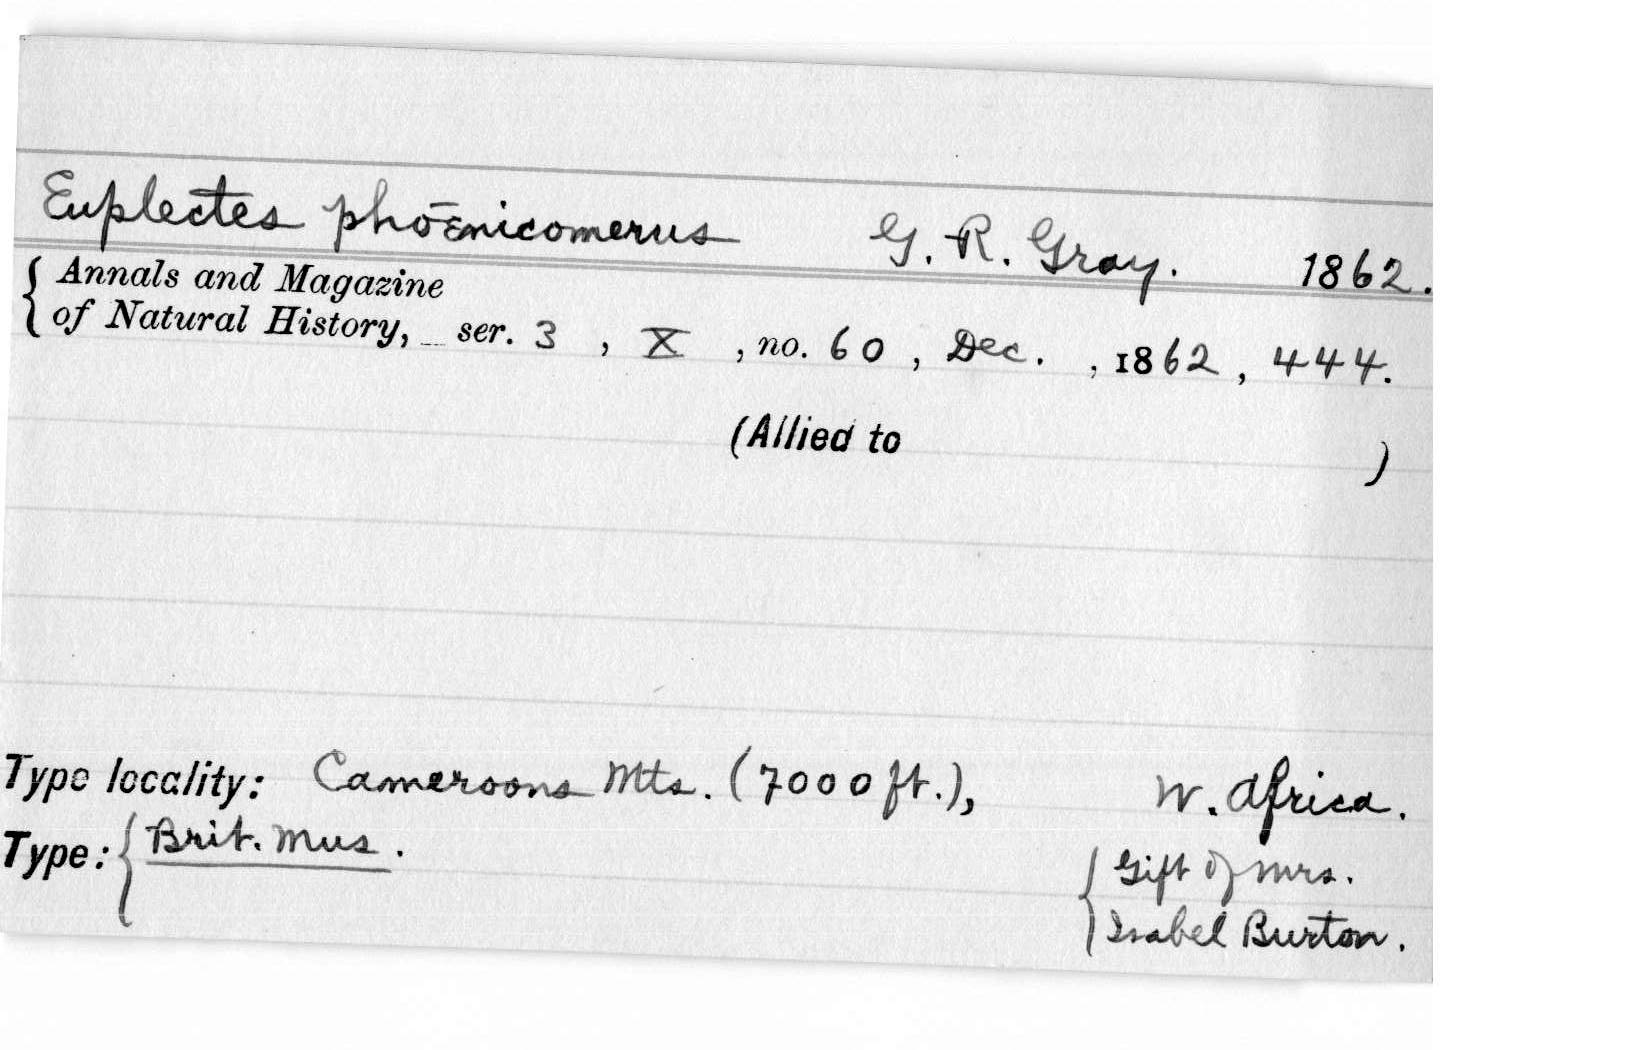 Euplectes phoenicomerus G. R. Gray. 1862.
{ Annals and Magazine
of Natural History, ser. 3, X, no. 60, Dec., 1862, 444.
(Allied to )
Type locality: Cameroons Mts. (7000 ft.), W. Africa.
Type: { Brit. Mus. { Gift of Mrs.
Isabel Burton.